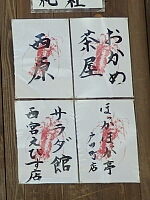 おかめ
茶屋
西原
ほっかほっか亭
戸田町店
サラダ館
西宮えびす店